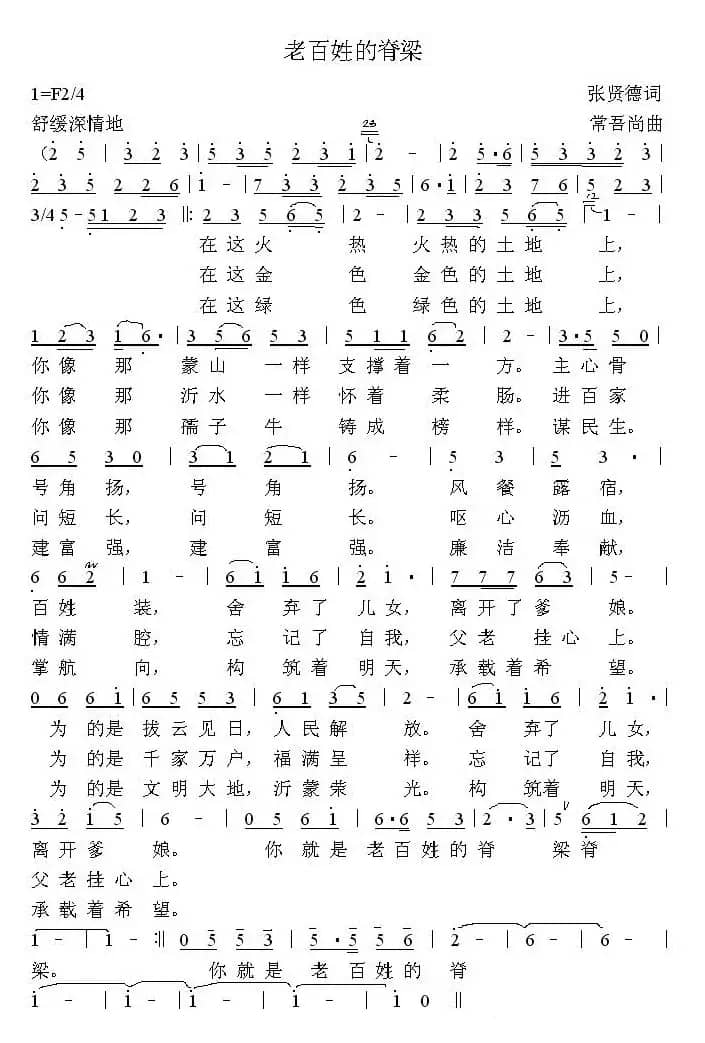 老百姓的脊梁
1=F2/4 张贤德词
舒缓深情地 常吾尚曲
(2 5 | 3 2 3 | 5 3 5 2 3 1 | 2 - | 2 5·6 | 5 3 3 2 3 |
2 3 5 2 2 6 | 1 - | 7 3 3 2 3 5 | 6·1 | 2 3 7 6 | 5 2 3 |
3/4 5 - 5 1 2 3 ‖: 2 3 5 6 5 | 2 - | 2 3 3 5 6 5 | 1 - |
在这火 热 火热的土地 上,
在这金 色 金色的土地 上,
在这绿 色 绿色的土地 上,
1 2 3 1 6· | 3 5 6 5 3 | 5 1 1 6 2 | 2 - | 3·5 5 0 |
你像 那 蒙山 一样 支撑着 一 方。主心骨
你像 那 沂水 一样 怀着 柔 肠。进百家
你像 那 孺子 牛 铸成 榜 样。谋民生
6 5 3 0 | 3 1 2 1 | 6 - | 5 3 | 5 3· |
号角扬, 号 角 扬。 风 餐 露 宿,
问短长, 问 短 长。 呕 心 沥 血,
建富强, 建 富 强。 廉 洁 奉 献,
6 6 2 | 1 - | 6 1 1 6 | 2 1· | 7 7 7 6 3 | 5 - |
百姓 装, 舍 弃了 儿女, 离开了爹 娘。
情满 腔, 忘 记了 自我, 父老 挂心 上。
掌航 向, 构 筑着 明天, 承载着希 望。
0 6 6 1 | 6 5 5 3 | 6 1 3 5 | 2 - | 6 1 1 6 | 2 1· |
为 的是 拔云见日,人民解 放。 舍 弃了 儿女,
为 的是 千家万户,福满呈 样。 忘 记了 自我,
为 的是 文明大地,沂蒙荣 光。 构 筑着 明天,
3 2 1 5 | 6 - | 0 5 6 1 | 6·6 5 3 | 2·3 | 5 6 1 2 |
离开爹 娘。 你 就是 老百姓的脊 梁脊
父老挂心上。
承载着希望。
1 - | 1 - :‖ 0 5 5 3 | 5·5 5 6 | 2 - | 6 - | 6 - |
梁。 你就是 老 百姓的 脊
1 - | 1 - | 1 - | 1 - | 1 - | 1 0 ‖